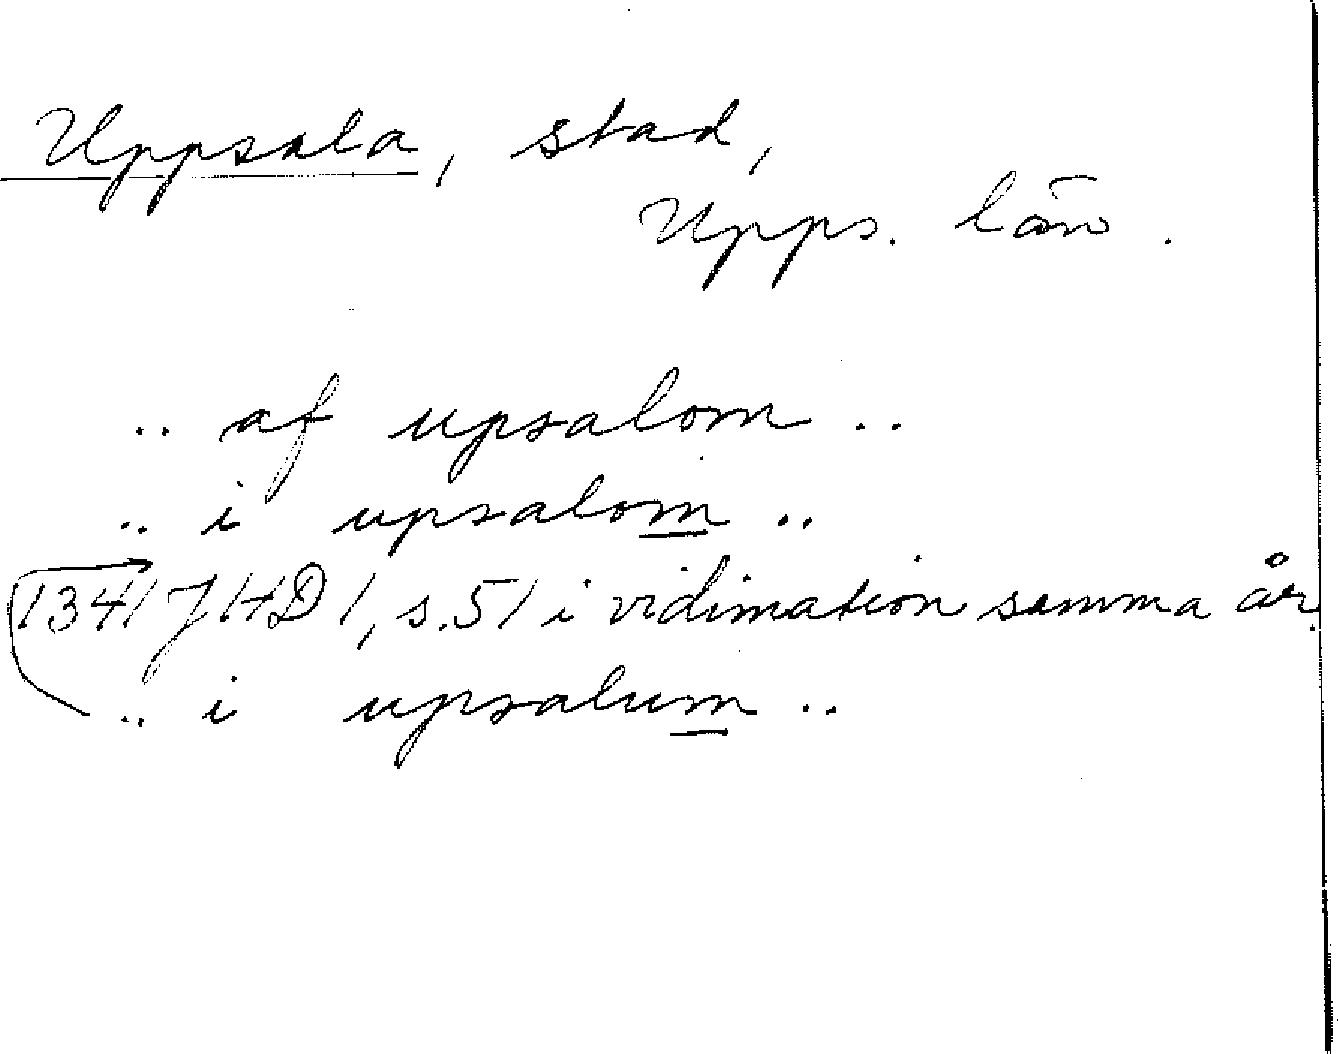 Uppsala, stad,
Upps. län.
.. af upsalom ..
.. i upsalom ..
1341 JHD 1, s. 51 i vidimation samma år.
.. i upsalum ..